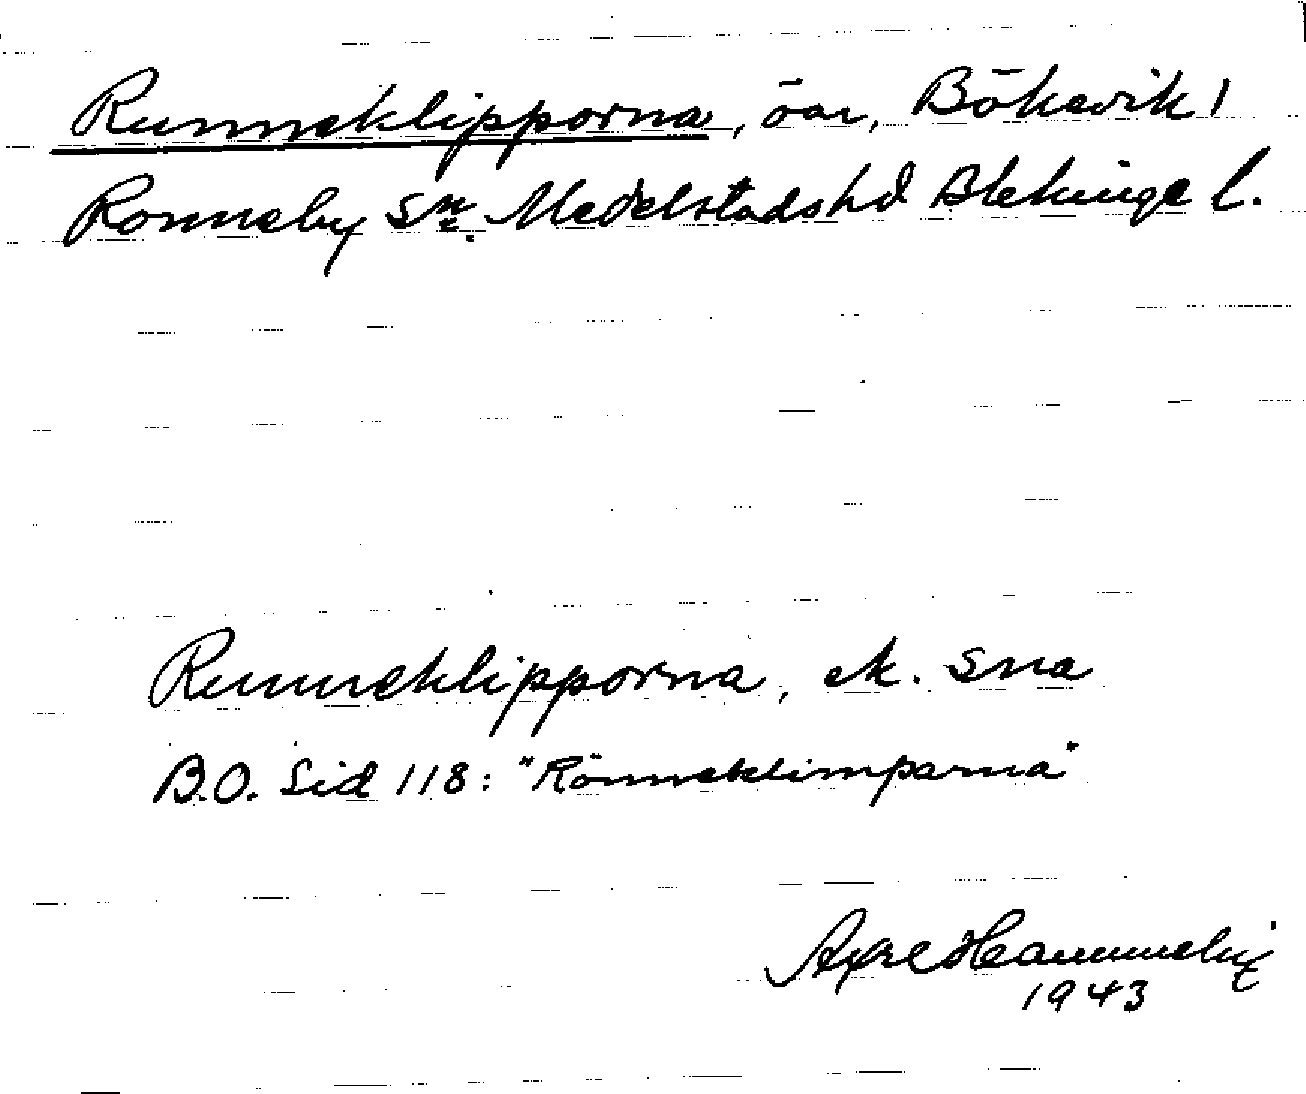 Runneklipporna, öar, Bökevik 1
Ronneby sn. Medelstads hd Blekinge l.
Runneklipporna, ek. sna
B.O. Sid 118: "Rönneklimparna"
Axel
1943